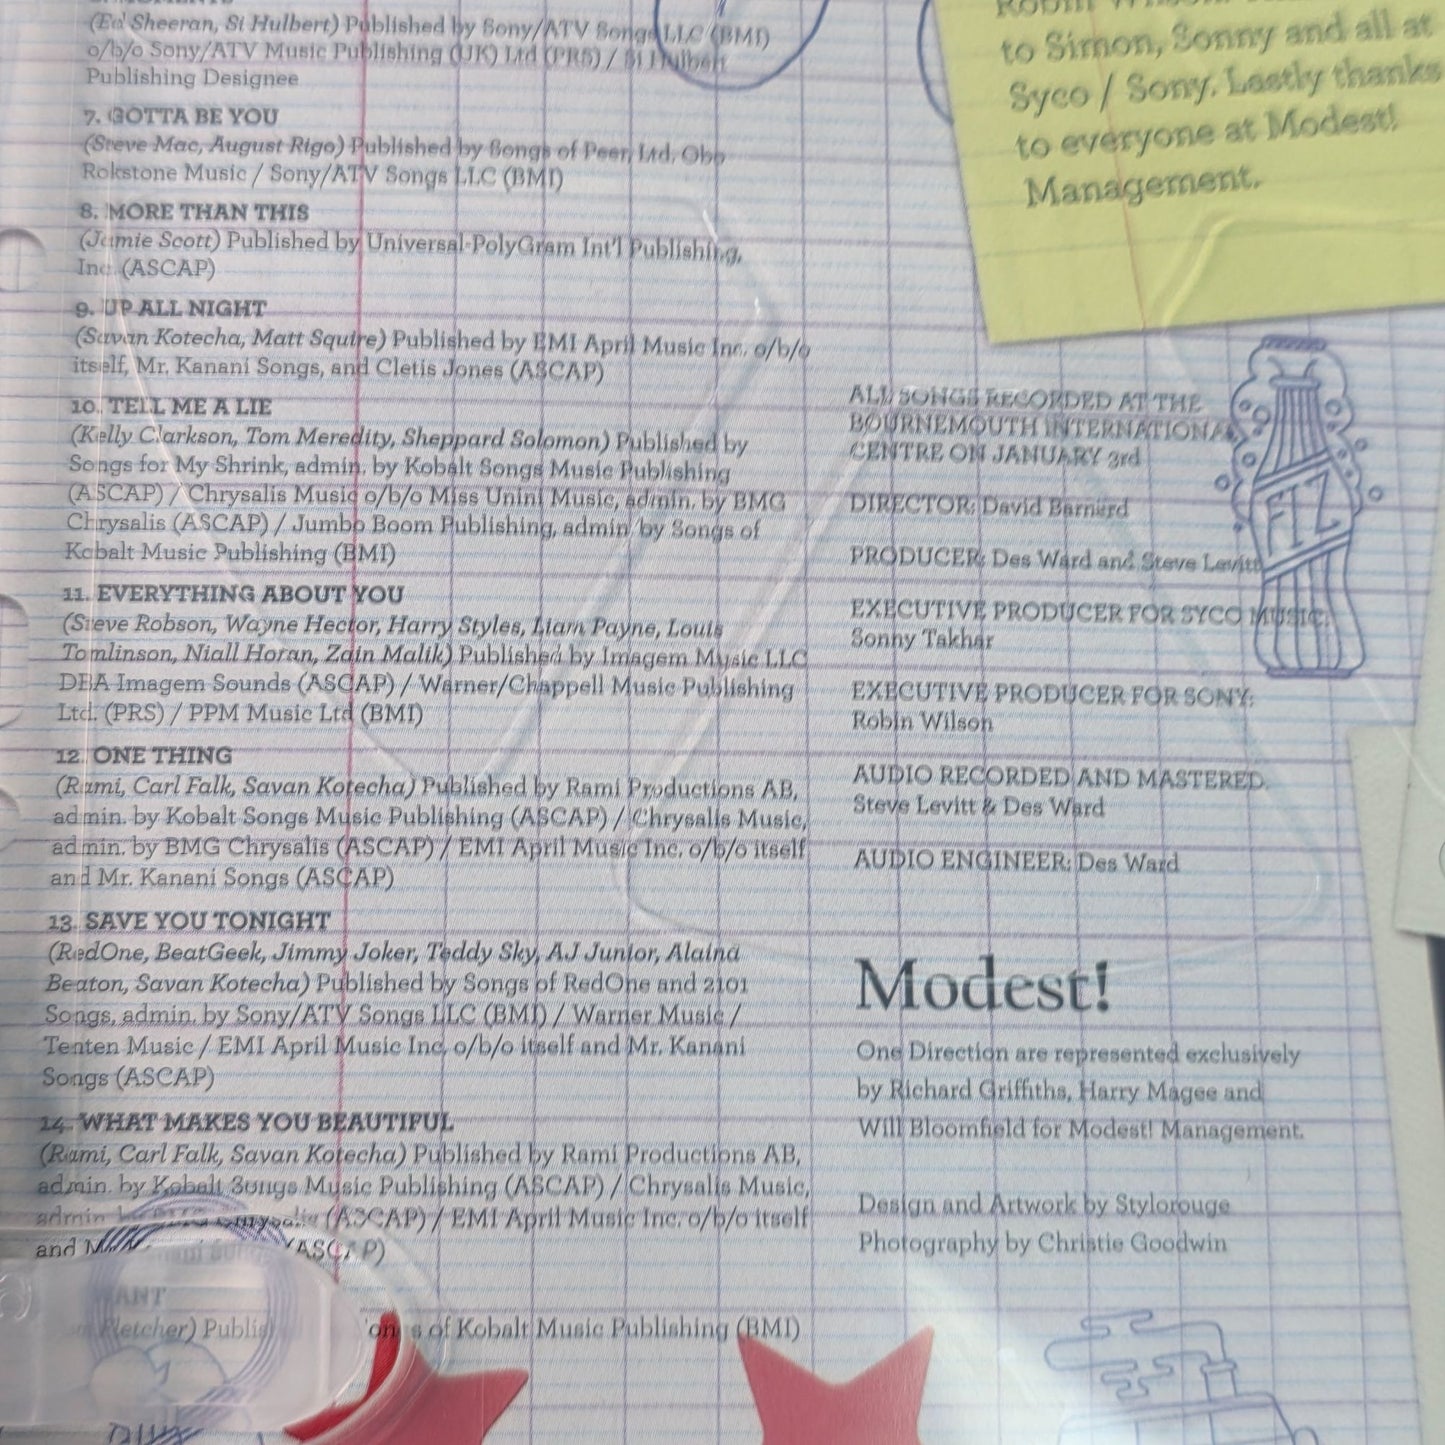 (Ed Sheeran, Si Hulbert) Published by Sony/ATV Songs LLC (BMI)
o/b/o Sony/ATV Music Publishing (UK) Ltd (PRS) / Si Hulbert
Publishing Designee
7. GOTTA BE YOU
(Steve Mac, August Rigo) Published by Songs of Peer, Ltd, Obo
Rokstone Music / Sony/ATV Songs LLC (BMI)
8. MORE THAN THIS
(Jamie Scott) Published by Universal-PolyGram Int'l Publishing,
Inc. (ASCAP)
9. UP ALL NIGHT
(Savan Kotecha, Matt Squire) Published by EMI April Music Inc. o/b/o
itself, Mr. Kanani Songs, and Cletis Jones (ASCAP)
10. TELL ME A LIE
(Kelly Clarkson, Tom Meredity, Sheppard Solomon) Published by
Songs for My Shrink, admin. by Kobalt Songs Music Publishing
(ASCAP) / Chrysalis Music o/b/o Miss Unini Music, admin. by BMG
Chrysalis (ASCAP) / Jumbo Boom Publishing, admin by Songs of
Kobalt Music Publishing (BMI)
11. EVERYTHING ABOUT YOU
(Steve Robson, Wayne Hector, Harry Styles, Liam Payne, Louis
Tomlinson, Niall Horan, Zain Malik) Published by Imagem Music LLC
DBA Imagem Sounds (ASCAP) / Warner/Chappell Music Publishing
Ltd. (PRS) / PPM Music Ltd (BMI)
12. ONE THING
(Rami, Carl Falk, Savan Kotecha) Published by Rami Productions AB,
admin. by Kobalt Songs Music Publishing (ASCAP) / Chrysalis Music,
admin. by BMG Chrysalis (ASCAP) / EMI April Music Inc. o/b/o itself
and Mr. Kanani Songs (ASCAP)
13. SAVE YOU TONIGHT
(RedOne, BeatGeek, Jimmy Joker, Teddy Sky, AJ Junior, Alaina
Beaton, Savan Kotecha) Published by Songs of RedOne and 2101
Songs, admin. by Sony/ATV Songs LLC (BMI) / Warner Music /
Tenten Music / EMI April Music Inc. o/b/o itself and Mr. Kanani
Songs (ASCAP)
14. WHAT MAKES YOU BEAUTIFUL
(Rami, Carl Falk, Savan Kotecha) Published by Rami Productions AB,
admin. by Kobalt Songs Music Publishing (ASCAP) / Chrysalis Music,
admin (ASCAP) / EMI April Music Inc. o/b/o itself
and (ASCAP)
Fletcher) of Kobalt Music Publishing (BMI)
to Simon, Sonny and all at
Syco / Sony. Lastly thanks
to everyone at Modest!
Management.
ALL SONGS RECORDED AT THE
BOURNEMOUTH INTERNATIONAL
CENTRE ON JANUARY 3rd
DIRECTOR: David Barnard
PRODUCER: Des Ward and Steve Levitt
EXECUTIVE PRODUCER FOR SYCO MUSIC:
Sonny Takhar
EXECUTIVE PRODUCER FOR SONY:
Robin Wilson
AUDIO RECORDED AND MASTERED
Steve Levitt & Des Ward
AUDIO ENGINEER: Des Ward
FIZ
Modest!
One Direction are represented exclusively
by Richard Griffiths, Harry Magee and
Will Bloomfield for Modest! Management.
Design and Artwork by Stylorouge
Photography by Christie Goodwin